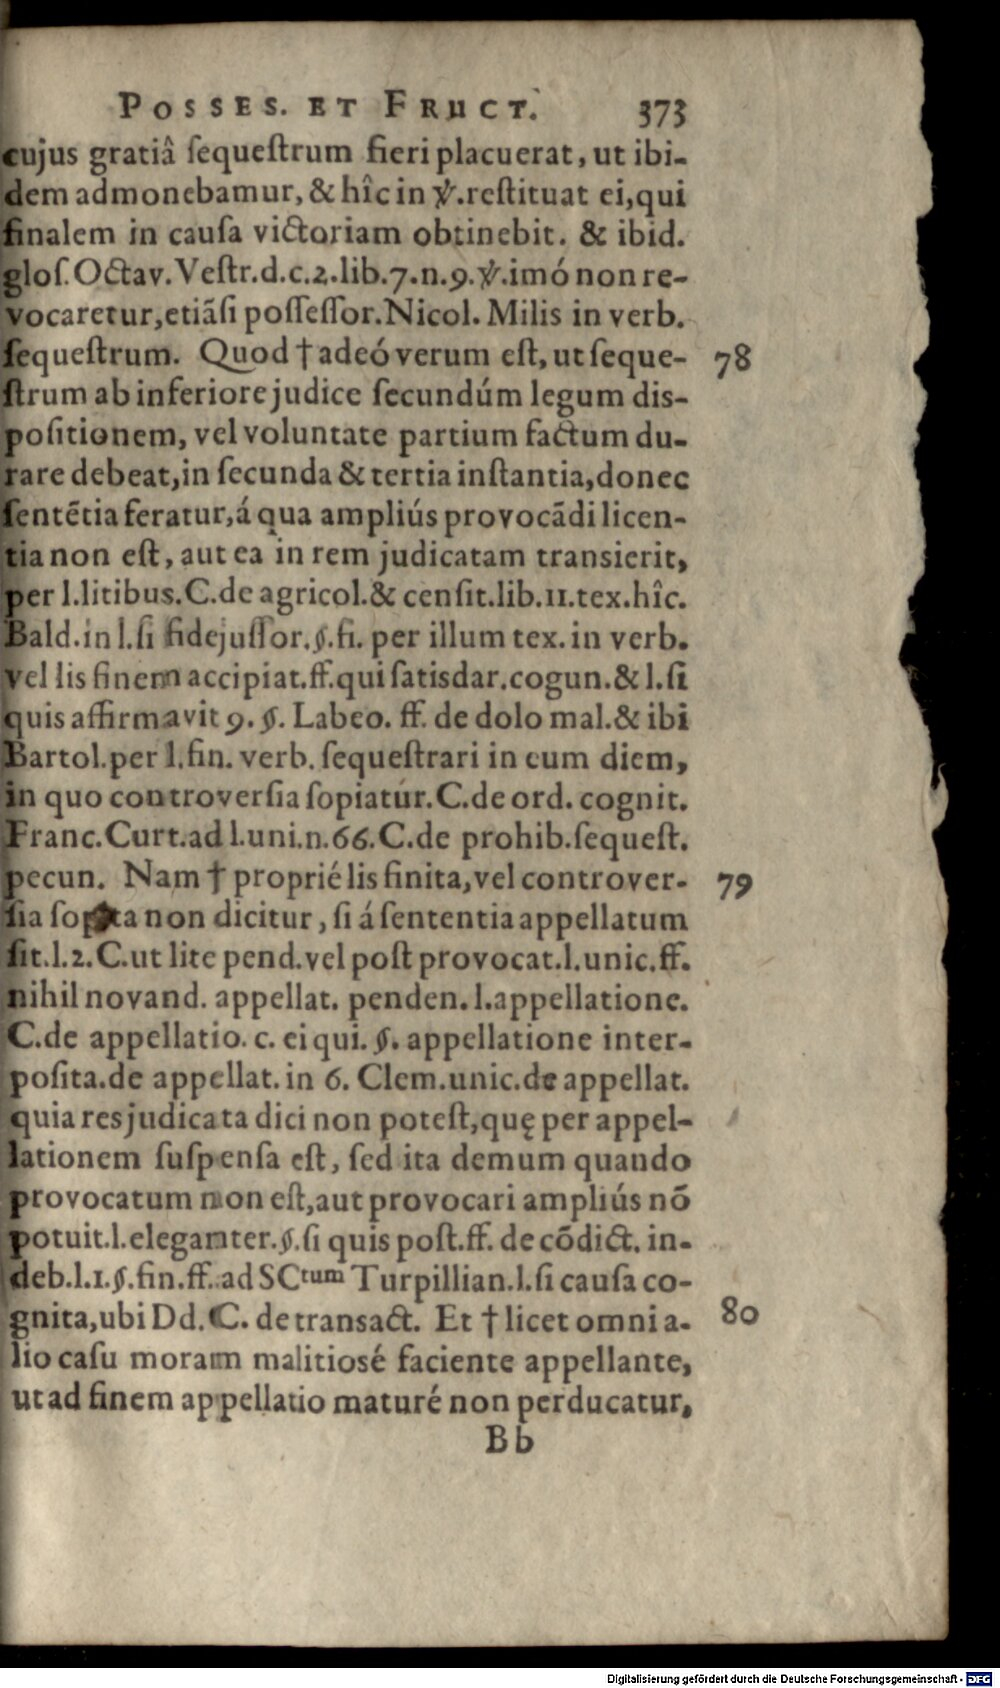 POSSES. ET FRUCT. 373
cujus gratiâ ſequeſtrum fieri placuerat, ut ibi-
dem admonebamur, & hîc in ℣. reſtituat ei, qui
finalem in cauſa victoriam obtinebit. & ibid.
gloſ. Octav. Veſtr. d. c. 2. lib. 7. n. 9. ℣. imó non re-
vocaretur, etiãſi poſſeſſor. Nicol. Milis in verb.
ſequeſtrum. Quod † adeó verum eſt, ut ſeque- 78
ſtrum ab inferiore judice ſecundúm legum dis-
poſitionem, vel voluntate partium factum du-
rare debeat, in ſecunda & tertia inſtantia, donec
ſentẽtia feratur, á qua ampliús provocãdi licen-
tia non eſt, aut ea in rem judicatam transierit,
per l. litibus. C. de agricol. & cenſit. lib. 11. tex. hîc.
Bald. in l. ſi fidejuſſor. §. fi. per illum tex. in verb.
vel lis finem accipiat. ff. qui ſatisdar. cogun. & l. ſi
quis affirmavit 9. §. Labeo. ff. de dolo mal. & ibi
Bartol. per l. fin. verb. ſequeſtrari in eum diem,
in quo controverſia ſopiatur. C. de ord. cognit.
Franc. Curt. ad l. uni. n. 66. C. de prohib. ſequeſt.
pecun. Nam † proprié lis finita, vel controver- 79
ſia ſopita non dicitur, ſi á ſententia appellatum
ſit. l. 2. C. ut lite pend. vel poſt provocat. l. unic. ff.
nihil novand. appellat. penden. l. appellatione.
C. de appellatio. c. ei qui. §. appellatione inter-
poſita. de appellat. in 6. Clem. unic. de appellat.
quia res judicata dici non poteſt, quę per appel-
lationem ſuſpenſa eſt, ſed ita demum quando
provocatum non eſt, aut provocari ampliús nõ
potuit. l. eleganter. §. ſi quis poſt. ff. de cõdict. in-
deb. l. 1. §. fin. ff. ad SCtum Turpillian. l. ſi cauſa co-
gnita, ubi Dd. C. de transact. Et † licet omni a- 80
lio caſu moram malitiosé faciente appellante,
ut ad finem appellatio maturé non perducatur,
Bb
Digitalisierung gefördert durch die Deutsche Forschungsgemeinschaft - DFG